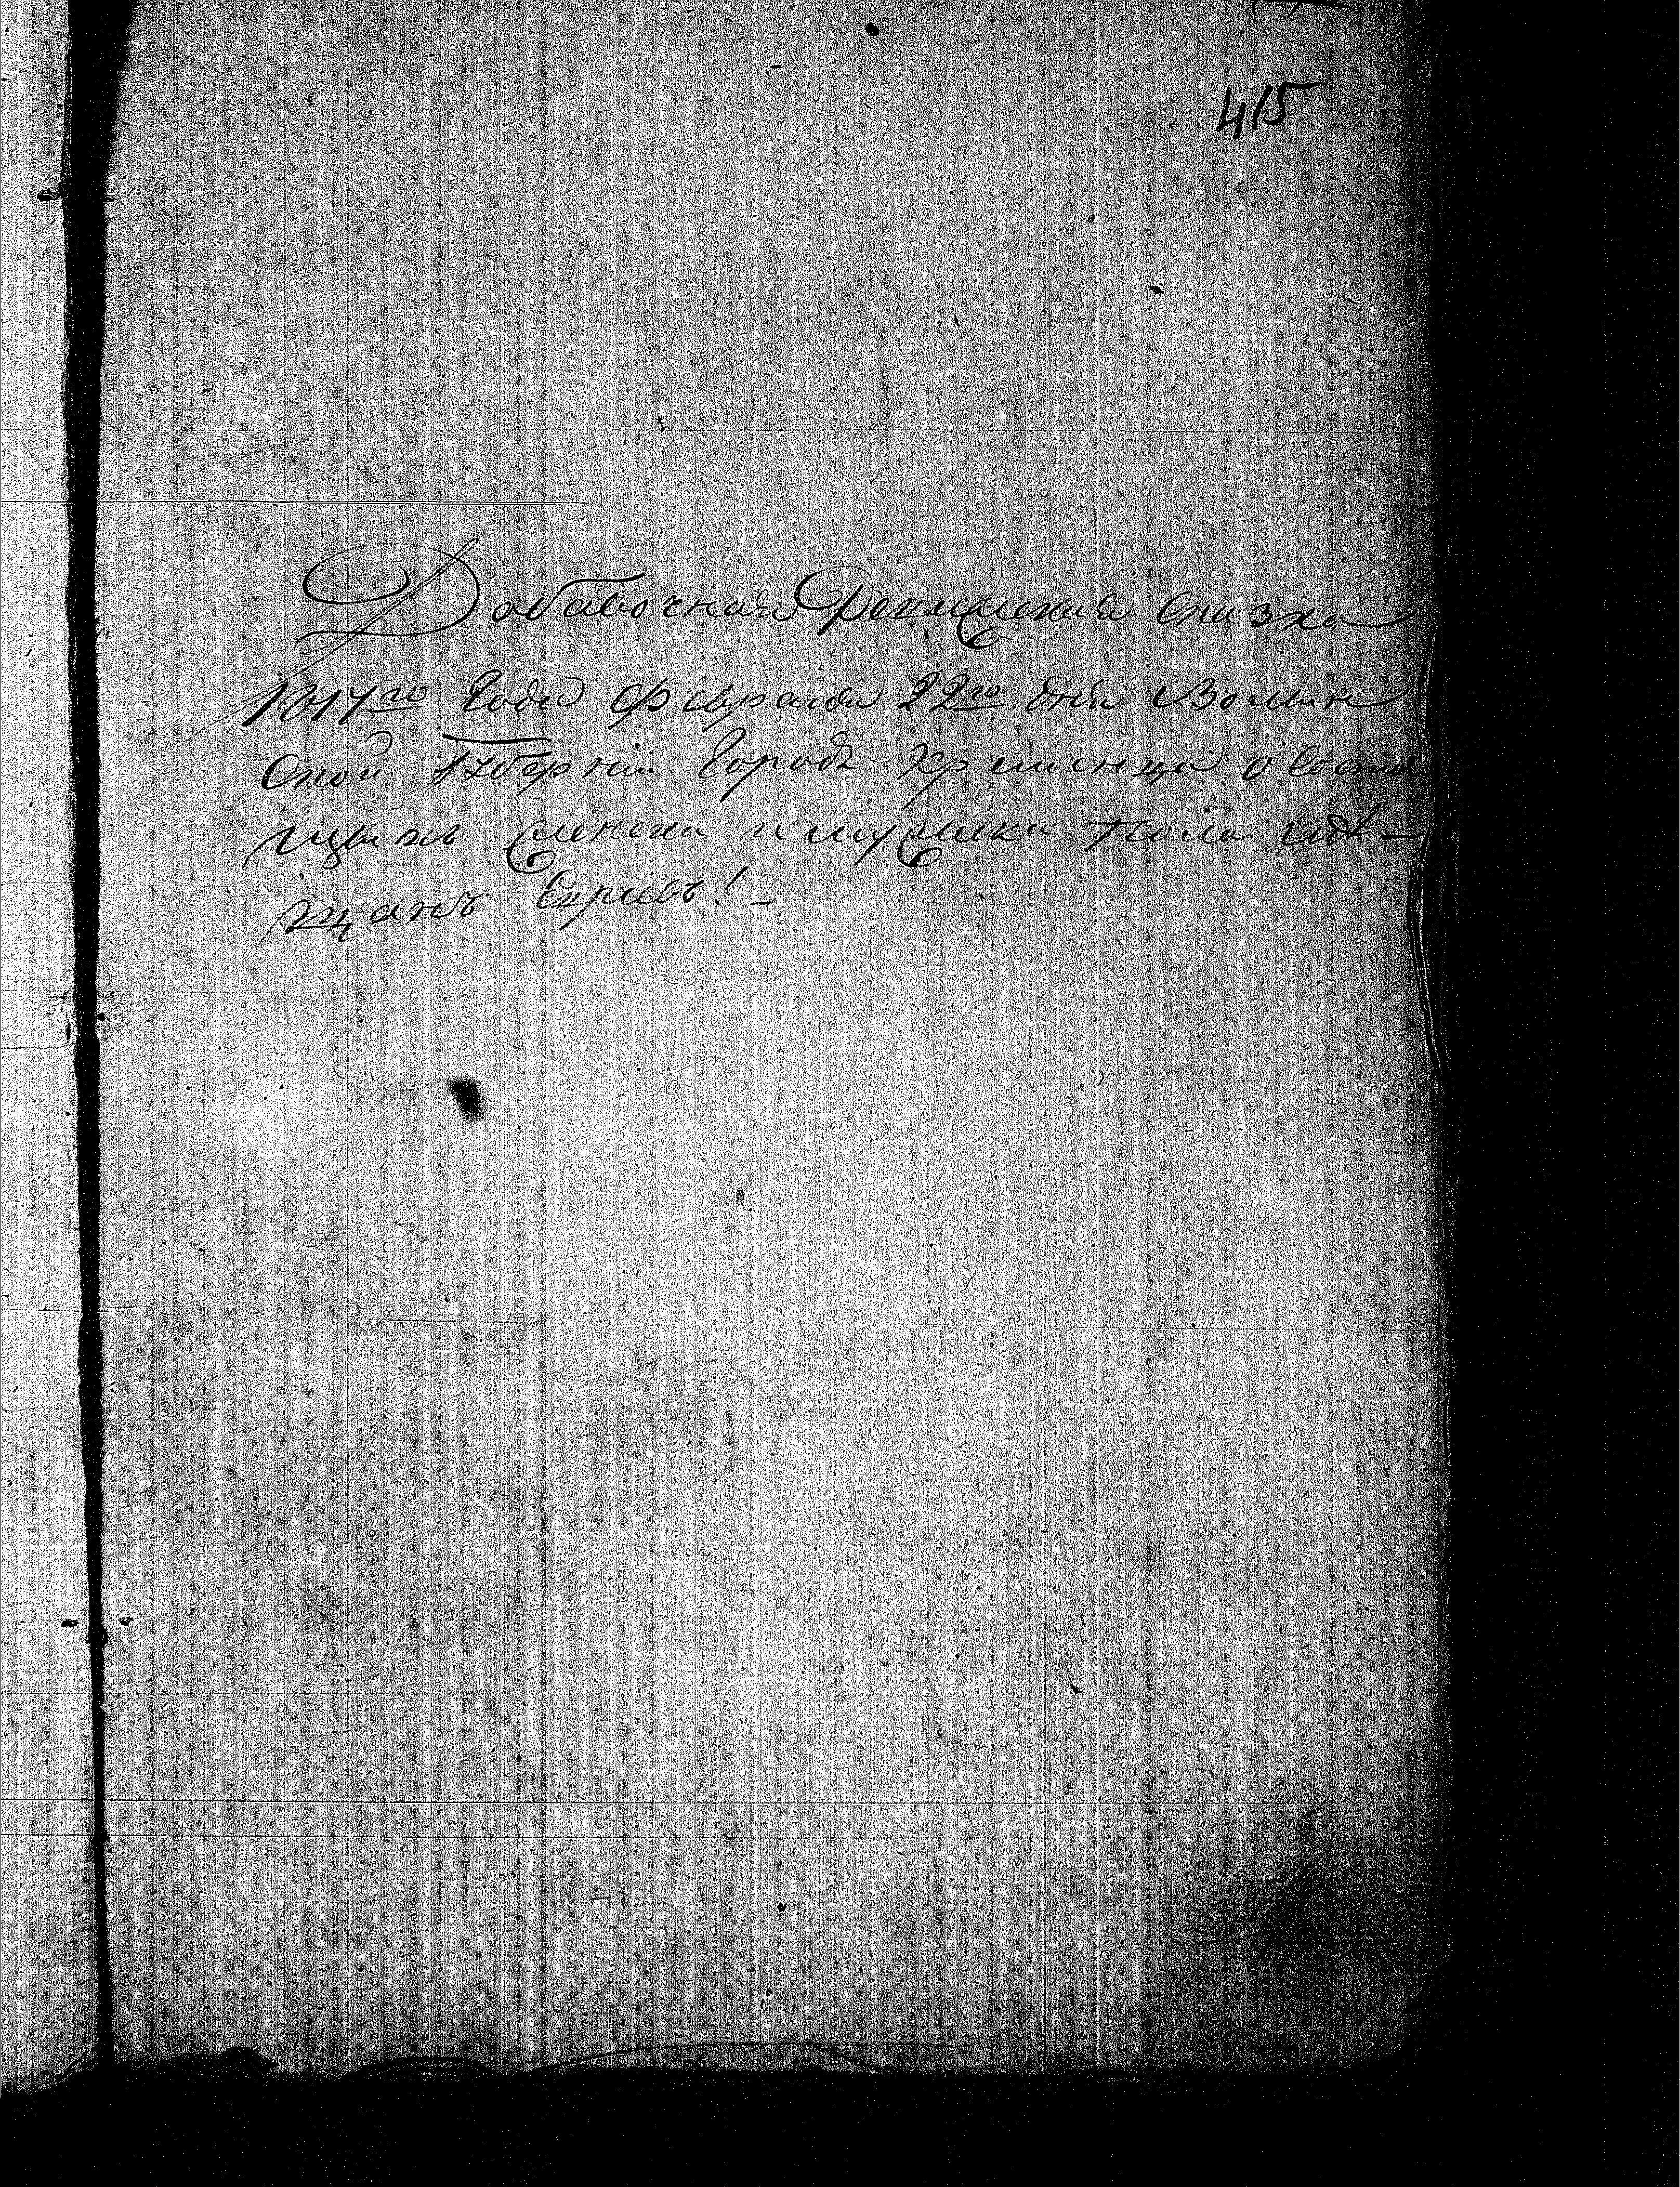 415
Добавочная Ревизская Сказка
1817го Года Февраля 22го дня Волын
Ской Губернии Города Кременца о Состоя
щихъ женска и мужеска Пола мѣ-
щанъ Евреевъ! -